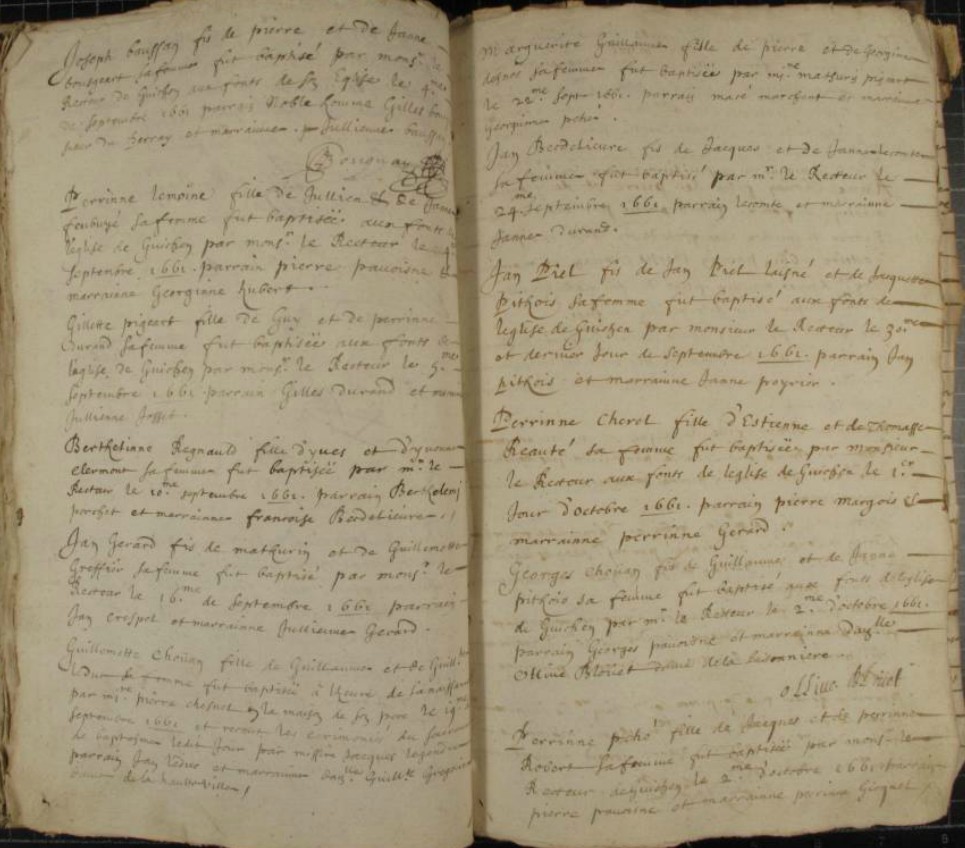 Joseph baussan fis de pierre et de Janne
sa femme fut baptisé par monsr. le
Recteur de Guichen aux fonts de son Eglise le 4me
de septembre 1661 parrain Noble homme Gilles
sieur du et marrainne Jullienne baussan
Perrinne lemoine fille de Jullien & de Janne
sa femme fut baptisée aux fonts de
leglise de Guichen par monsr. le Recteur le
septembre 1661. parrain pierre pauoisne &
marrainne Georginne hubert.
Gillette pigeart fille de Guy et de perrinne
Durand sa femme fut baptisée aux fonts de
leglise de Guichen par monsr. le Recteur le 5.me
septembre 1661 parrain Gilles Durand et marr
Jullienne
Berthelinne Regnauld fille d'yues et d'yuonne
clermont sa femme fut baptisée par mr. le
Recteur le 10.me septembre 1661. parrain Berthelemi
porchet et marrainne francoise Berdelieure
Jan Gerard fis de mathurin et de Guillemette
Greffier sa femme fut baptisé par monsr. le
Recteur le 16.me de septembre 1661 parrain
Jan crespel et marrainne Jullienne Gerard.
Guillemette Choüan fille de Guillaume et de Guill
sa femme fut baptisée à lheure de la naissance
par mre pierre chesnel en la maison de son pere le 19me
septembre 1661 et receut les cerimonies du
de baptesme ledit Jour par missire Jacques
parrain Jan et marrainne Guillte
dame de la hauteuille
Marguerite Guillaume fille de pierre et de Georginne
sa femme fut baptisée par mre mathurin pigeart
le 22me Sept 1661. parrain macé marchant et marrainne
Georginne poché.
Jan Berdelieure fis de Jacques et de Janne lecomte
sa femme fut baptisé par mr. le Recteur le
24me Septembre 1661 parrain lecomte et marrainne
Janne Durand.
Jan Piel fis de Jan Piel laisné et de Jacquette
Pitkois sa femme fut baptisé aux fonts de
leglise de Guichen par monsieur le Recteur le 30me
et dernier Jour de septembre 1661. parrain Jan
pitkois et marrainne Janne poyrier.
Perrinne Cherel fille d'Estienne et de Thomasse
Reauté sa femme fut baptisée par monsieur
le Recteur aux fonts de leglise de Guichen le 1er
Jour d'octobre 1661. parrain pierre margois &
marrainne perrinne Gerard
Georges Choüan fis de Guillaume et de Janne
pitkois sa femme fut baptisé aux fonts de leglise
de Guichen par mr. le Recteur le 2.me d'octobre 1661.
parrain Georges pauoisne et marrainne Dam.lle
Oliue Bloüet dame de la
olliue Blouet
Perrinne poché fille de Jacques et de perrinne
Robert sa femme fut baptisée par monsr. le
Recteur de Guichen le 2me d'octobre 1661 parrain
pierre pauoisne et marrainne perrine